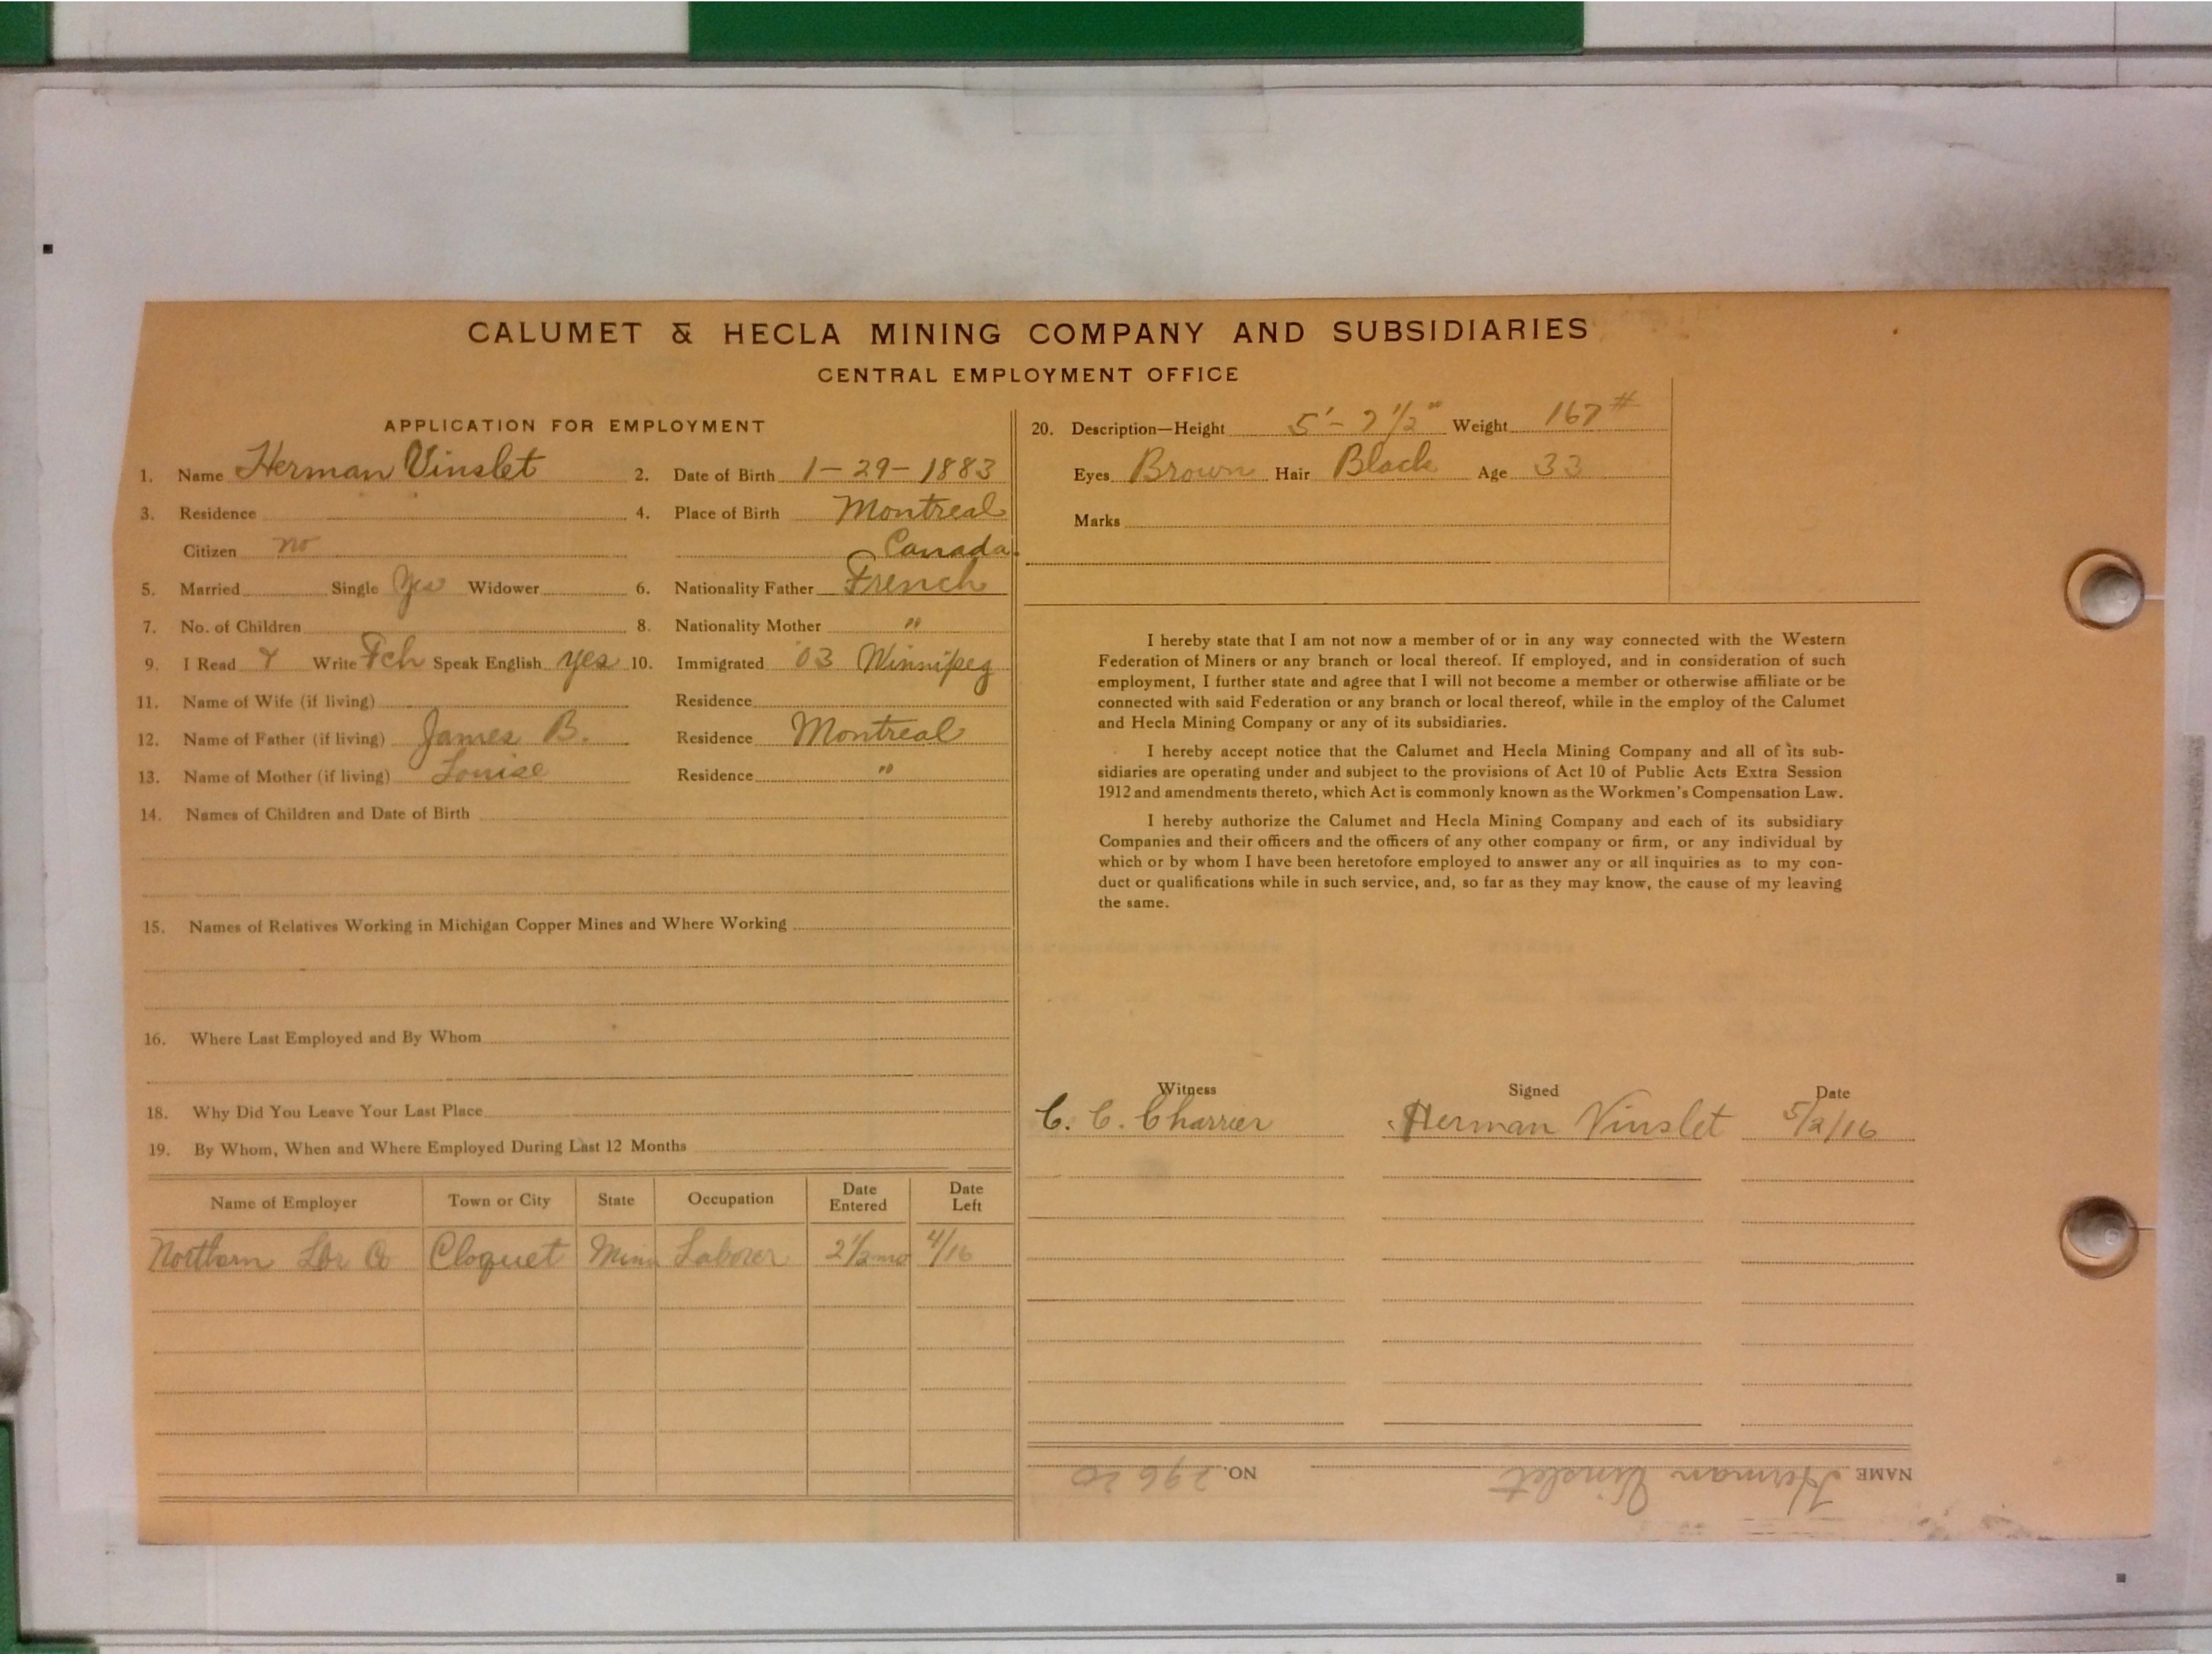 CALUMET & HECLA MINING COMPANY AND SUBSIDIARIES
CENTRAL EMPLOYMENT OFFICE
APPLICATION FOR EMPLOYMENT
1. Name Herman Vinslet 2. Date of Birth 1-29-1883
3. Residence 4. Place of Birth Montreal
Citizen no Canada
5. Married Single Yes Widower 6. Nationality Father French
7. No. of Children 8. Nationality Mother "
9. I Read Write Fch Speak English yes 10. Immigrated '03 Winnipeg
11. Name of Wife (if living) Residence
12. Name of Father (if living) James B. Residence Montreal
13. Name of Mother (if living) Louise Residence "
14. Names of Children and Date of Birth
15. Names of Relatives Working in Michigan Copper Mines and Where Working
16. Where Last Employed and By Whom
18. Why Did You Leave Your Last Place
19. By Whom, When and Where Employed During Last 12 Months
Name of Employer Town or City State Occupation Date Entered Date Left
Northern Lbr Co Cloquet Minn Laborer 2 1/2 mo 4/16
20. Description—Height 5'-7 1/2" Weight 167#
Eyes Brown Hair Black Age 33
Marks
I hereby state that I am not now a member of or in any way connected with the Western
Federation of Miners or any branch or local thereof. If employed, and in consideration of such
employment, I further state and agree that I will not become a member or otherwise affiliate or be
connected with said Federation or any branch or local thereof, while in the employ of the Calumet
and Hecla Mining Company or any of its subsidiaries.
I hereby accept notice that the Calumet and Hecla Mining Company and all of its sub-
sidiaries are operating under and subject to the provisions of Act 10 of Public Acts Extra Session
1912 and amendments thereto, which Act is commonly known as the Workmen's Compensation Law.
I hereby authorize the Calumet and Hecla Mining Company and each of its subsidiary
Companies and their officers and the officers of any other company or firm, or any individual by
which or by whom I have been heretofore employed to answer any or all inquiries as to my con-
duct or qualifications while in such service, and, so far as they may know, the cause of my leaving
the same.
Witness Signed Date
C. C. Charrier Herman Vinslet 5/2/16
NAME Herman Vinslet NO. 29620